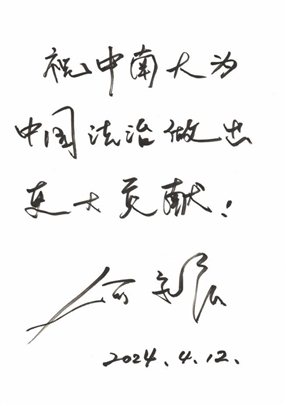 祝中南大为
中国法治做出
更大贡献！
何
2024.4.12.